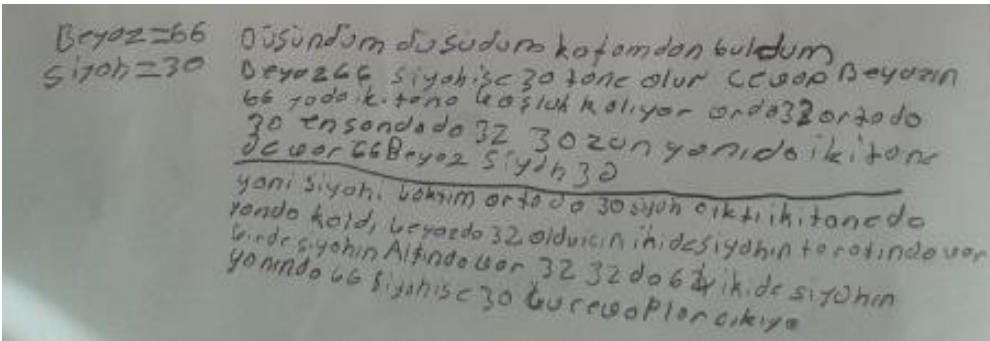 Beyaz=66 Düşündüm düşüdum kafamdan buldum
Siyah=30 Beyaz66 siyahise 30 tane olur cevap Beyazın
66 yada ikitane boşluk kalıyor orda32 ortada
30 ensondada 32 30zun yanıda ikitane
de var 66Beyaz Siyah 30
yani siyahı baktım ortada 30 siyah çıktı ikitanede
yanda kaldı beyazda 32 olduiçin ikidesiyahın tarafında var
birde siyahın Altında var 32 32 da 64 ikide siyahın
yanında 66 Siyahise 30 bu cevaplar çıkıya